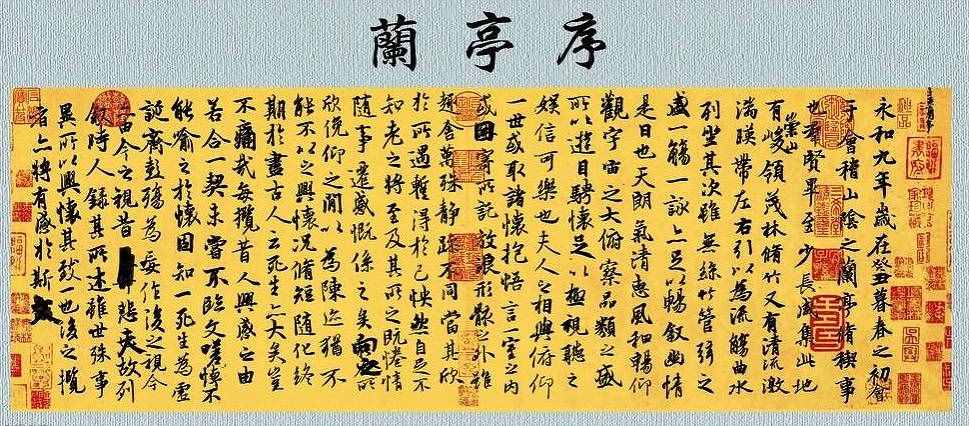 蘭亭序
永和九年歲在癸丑暮春之初會
于會稽山陰之蘭亭脩稧事
也羣賢畢至少長咸集此地
有崇山峻領茂林脩竹又有清流激
湍暎帶左右引以為流觴曲水
列坐其次雖無絲竹管弦之
盛一觴一詠亦足以暢敘幽情
是日也天朗氣清惠風和暢仰
觀宇宙之大俯察品類之盛
所以遊目騁懷足以極視聽之
娛信可樂也夫人之相與俯仰
一世或取諸懷抱悟言一室之內
或因寄所託放浪形骸之外雖
趣舍萬殊靜躁不同當其欣
於所遇暫得於己怏然自足不
知老之將至及其所之既惓情
隨事遷感慨係之矣向之所
欣俛仰之閒以為陳迹猶不
能不以之興懷況脩短隨化終
期於盡古人云死生亦大矣豈
不痛哉每攬昔人興感之由
若合一契未嘗不臨文嗟悼不
能喻之於懷固知一死生為虛
誕齊彭殤為妄作後之視今
亦由今之視昔悲夫故列
敘時人錄其所述雖世殊事
異所以興懷其致一也後之攬
者亦將有感於斯文